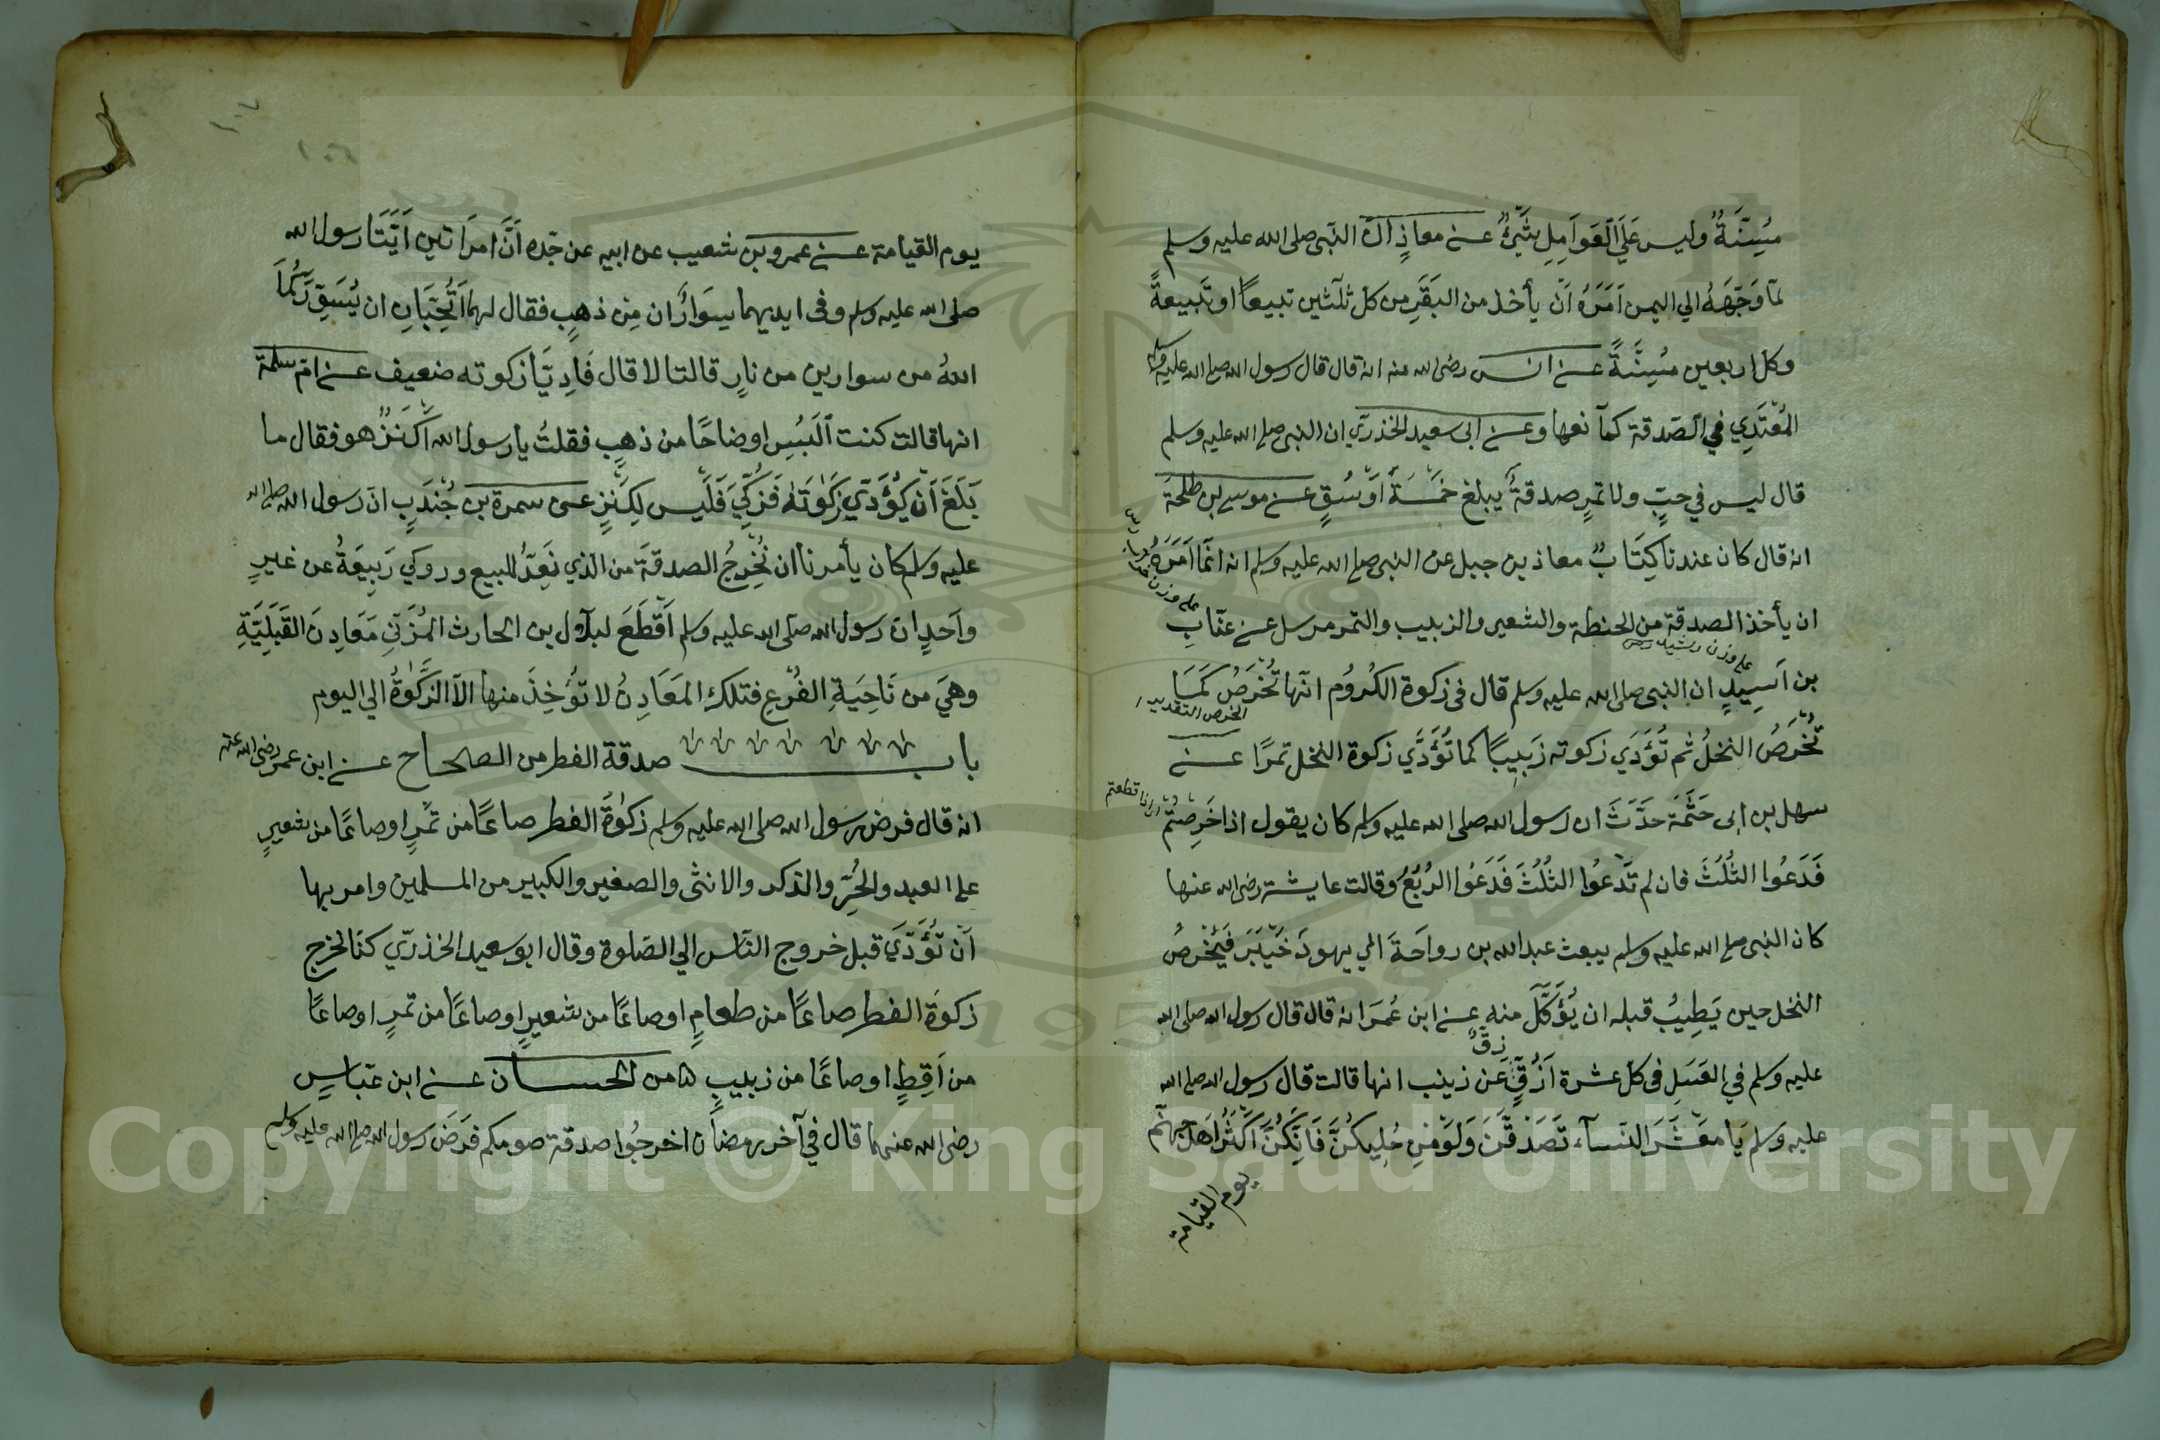 مُسِنَّةٌ وليس عَلَي العَوَامِلِ شَيْءٌ عن معاذٍ انّ النّبى صلى الله عليه وسلم
لمّا وَجّهَهُ الي اليمن اَمَرَهُ اَنْ يأخذ من البَقَرِ من كل ثلٰثين تبيعًا او تَبِيعةً
وكل اربعين مُسِنَّةً عن انس رضى الله عنه انه قال قال رسول الله صلى الله عليه وسلم
المُعْتَدِي في الصّدقة كمانعها وعن ابى سعيد الخذريّ ان النبى صلى الله عليه وسلم
قال ليس في حبٍّ ولا تمرٍ صدقةٌ يبلغ خَمْسَةَ اَوْسُقٍ عن موسى بن طلحة
انه قال كان عندنا كِتَابٌ معاذ بن جبل عن النبى صلى الله عليه وسلم انه انمّا اَمَرَهُ
ان يأخذ الصدقة من الحنطة والشعير والزبيب والتمر مرسل عن عتّاب
على وزن
على وزن رشيد
بن اَسِيدٍ ان النبى صلى الله عليه وسلم قال فى زكوة الكُرُوم انّها تُخْرَصُ كَمَا
الخرص التقدير
تُخْرَصُ النخلُ ثم تُؤَدَي زكوته زَبِيبًا كما تُؤَدَّي زكوة النخل تمرًا عن
سهل بن ابى حَثْمَة حَدَّثَ ان رسول الله صلى الله عليه وسلم كان يقول اذا خَرَصْتُمْ
اى اذا قطعتم
فَدَعُوا الثُلُثَ فان لم تَدَعُوا الثُلُثَ فَدَعُوا الرُبْعَ وقالت عايشة رضى الله عنها
كان النبى صلى الله عليه وسلم يبعث عبد الله بن رواحَةَ الي يهود خَيْبَرَ فَيَخْرُصُ
النخل حين يَطِيبُ قبله ان يُؤَكَلَ منه عن ابن عُمَرَ انه قال قال رسول الله صلى الله
زقّ
عليه وسلم في العَسَلِ فى كل عشرة اَزُقٍّ عَن زينب انها قالت قال رسول الله صلى الله
عليه وسلم يَا معْشَرَ النسآء تَصَدّقْنَ وَلَوْ مِنْ حُلِيكُنَّ فَاِنّكُنَّ اَكْثَرُ اهل جهنّم
يوم القيامة
يوم القيامة عن عمرو بن شعيب عن ابيه عن جدّه اَنَّ امرَاتين اَتَتَا رسول الله
صلى الله عليه وسلم وفى ايديهما سِوَارَان مِن ذهبٍ فقال لهما اَتُحِبّانِ ان يُسَوِّرَكُمَا
اللهُ من سوارين من نارٍ قالتا لا قال فَادِيَا زكوته ضعيف عن امّ سلمة
انها قالت كنت اَلْبَسُ اوضاحًا من ذهبٍ فقلتُ يا رسول الله اَكَنْزٌ هو فقال ما
بَلَغَ اَنْ يُؤَدّي زَكوتَهُ فَزُكِّيَ فَلَيْس بكَنْزٍ عن سمرة بن جُنْدَبٍ انّ رسول الله صلى الله
عليه وسلم كان يأمرنا ان نُخْرِجَ الصدقةَ من الذي نَعِدُّ للبيع وروي رَبِيعَةُ عن غيرِ
واحدٍ ان رسول الله صلى الله عليه وسلم اَقْطَعَ لبلال بن الحارث المُزَنِي مَعَادِنَ القَبَلِيَّةِ
وهيَ من نَاحِيَةِ الفُرْعِ فتلك المَعَادِنُ لا تُؤْخَذُ منها الاّ الزَّكوةُ الي اليوم
باب صدقة الفطر من الصحاح عن ابن عمر رضى الله عنه
انه قال فرض رسول الله صلى الله عليه وسلم زكوةَ الفطر صاعًا من تَمْرٍ او صاعًا من شعيرٍ
على العبد والحُرّ والذكر والانثى والصغير والكبير من المسلمين وامر بها
اَنْ تُؤَدّيَ قبل خروج النّاس الي الصّلوة وقال ابو سعيد الخذريّ كنّا نخرج
زكوة الفطر صاعًا من طعامٍ او صاعًا من شعيرٍ او صاعًا من تمرٍ او صاعًا
من اَقِطٍ او صاعًا من زبيبٍ من الحسان عن ابن عبّاسٍ
رضى الله عنهما قال في آخر رمضان اخرجُوا صدقة صومكم فرَضَ رسول الله صلى الله عليه وسلم
Copyright © King Saud University
1957